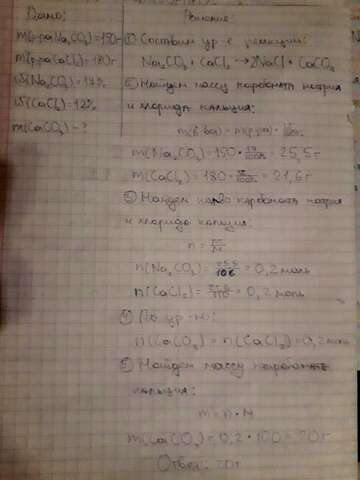 Дано:
m(р-ра Na₂CO₃)=150г
m(р-ра CaCl₂)=180г
ω(Na₂CO₃)=17%
ω(CaCl₂)=12%
m(CaCO₃) - ?
Решение
① Составим ур-е реакции:
Na₂CO₃ + CaCl₂ → 2NaCl + CaCO₃
② Найдем массу карбоната натрия
и хлорида кальция:
m(в-ва) = m(р-ра) ·
m(Na₂CO₃) = 150 · 17/100% = 25,5 г
m(CaCl₂) = 180 · 12/100% = 21,6 г
③ Найдем кол-во карбоната натрия
и хлорида кальция:
n = m/M
n(Na₂CO₃) = 25,5/106 = 0,2 моль
n(CaCl₂) = = 0,2 моль
④ По ур-ю:
n(CaCO₃) = n(CaCl₂) = 0,2 моль
⑤ Найдем массу карбоната
кальция:
m = n · M
m(CaCO₃) = 0,2 · 100 = 20г
Ответ: 20г